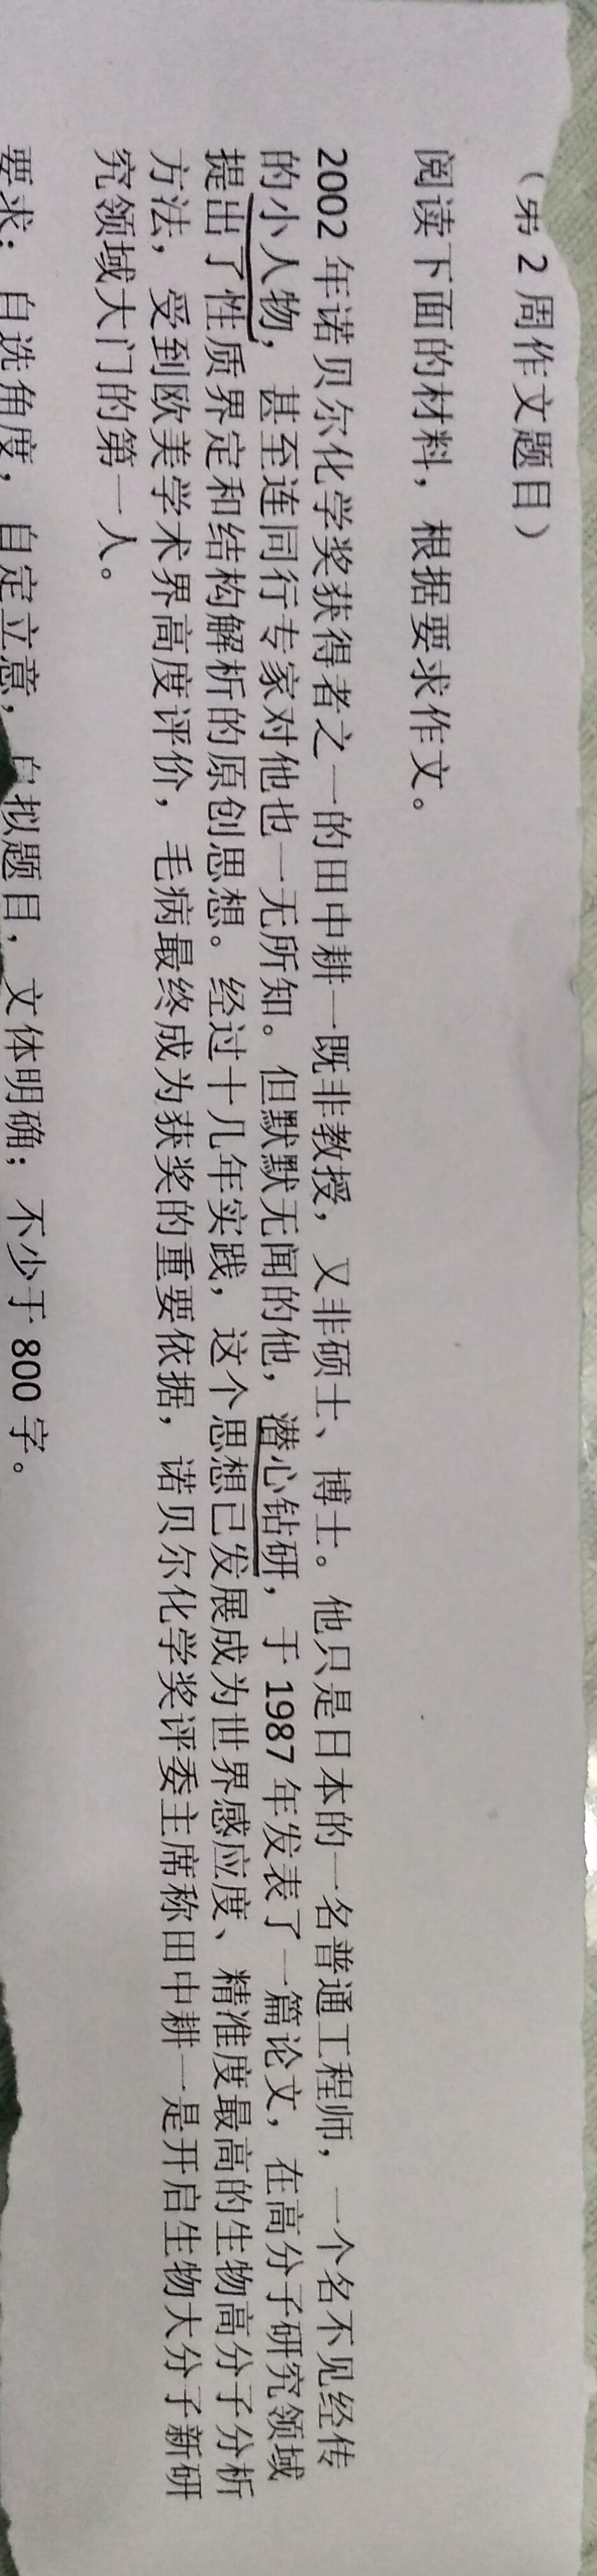 （第2周作文题目）
阅读下面的材料，根据要求作文。
2002年诺贝尔化学奖获得者之一的田中耕一既非教授，又非硕士、博士。他只是日本的一名普通工程师，一个名不见经传
的小人物，甚至连同行专家对他也一无所知。但默默无闻的他，潜心钻研，于1987年发表了一篇论文，在高分子研究领域
提出了性质界定和结构解析的原创思想。经过十几年实践，这个思想已发展成为世界感应度、精准度最高的生物高分子分析
方法，受到欧美学术界高度评价，毛病最终成为获奖的重要依据，诺贝尔化学奖评委主席称田中耕一是开启生物大分子新研
究领域大门的第一人。
要求：自选角度，自定立意，自拟题目，文体明确；不少于800字。